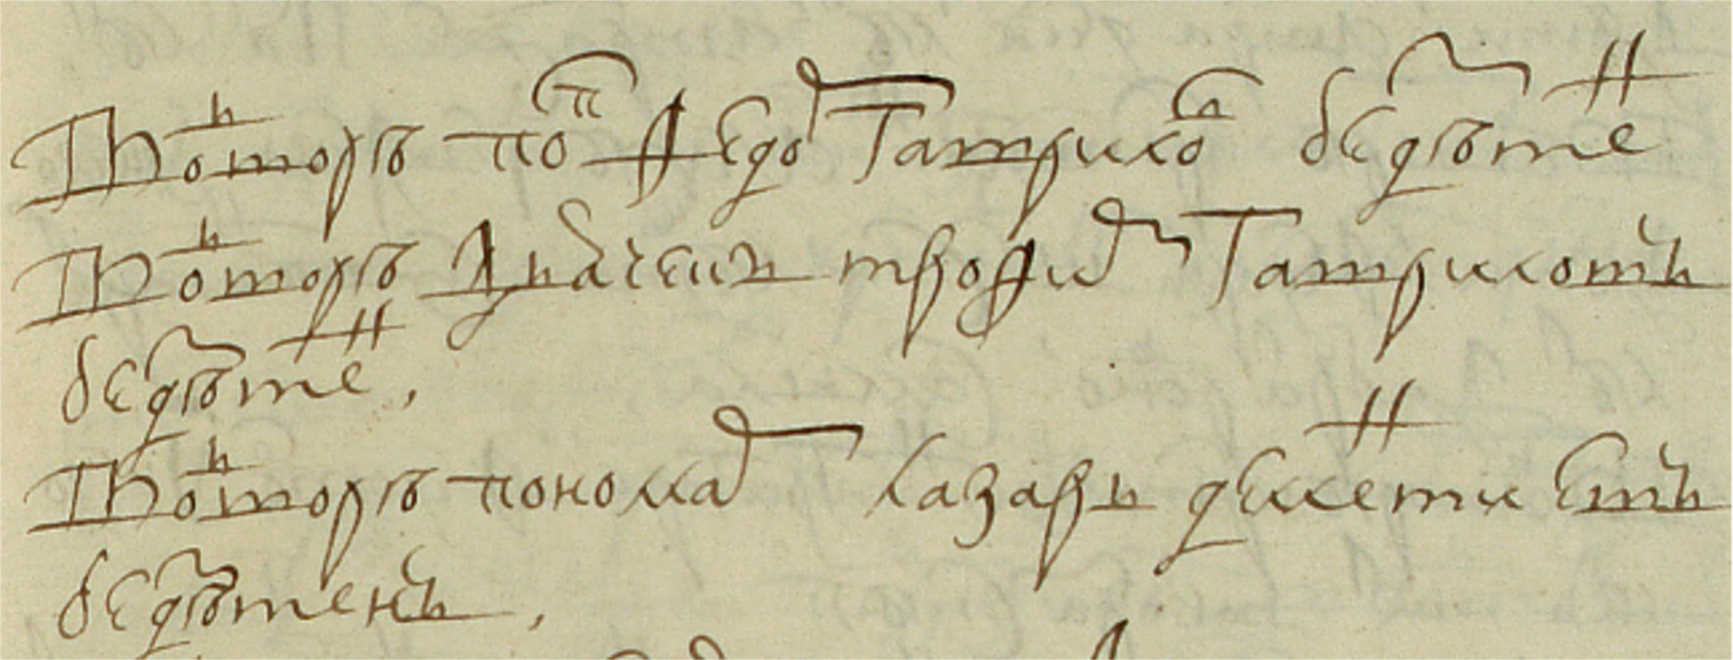 Во дворѣ поп Федор Гаврилов бездѣтен
Во дворѣ дьячекъ Трофим Гавриловъ
бездѣтен,
Во дворѣ пономар Лазарь Дементиевъ
бездѣтенъ,